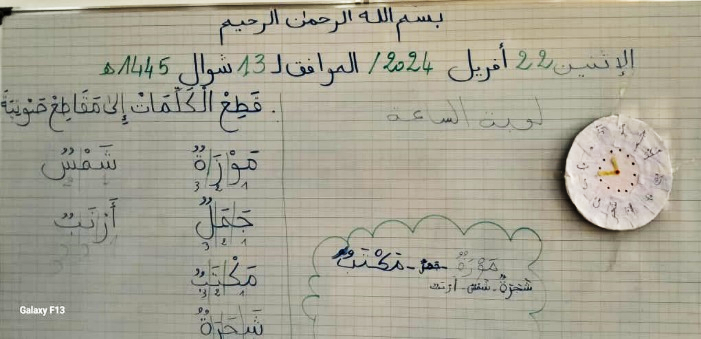 بسم الله الرحمن الرحيم
الإثنين 22 أفريل 2024/ الموافق لـ 13 شوال 1445 هـ
. قَطِّعْ الْكَلِمَاتْ إِلَى مَقَاطِعْ صَوْتِيَّةً
مَوْزَةٌ
1 2 3
شَمْسٌ
جَمَلٌ
1 2 3
أَرْنَبٌ
مَكْتَبٌ
1 2 3
شَجَرَةٌ
الساعة
مَوْزَةٌ - جمل - مَكْتَبٌ
شَجَرَةٌ - شمس - أرنب
Galaxy F13